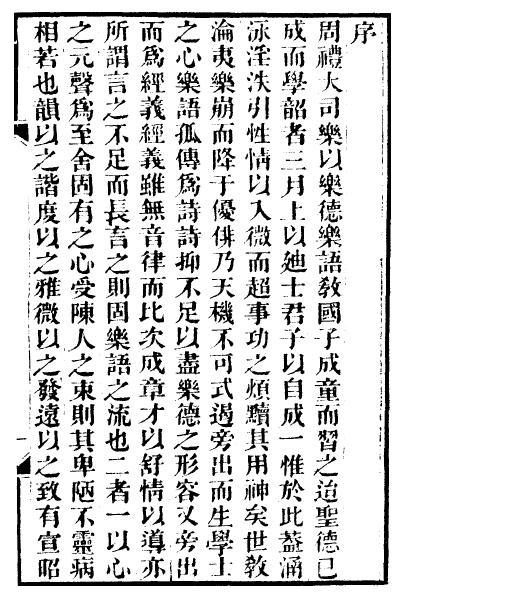 序
周禮大司樂以樂德樂語敎國子成童而習之迨聖德已
成而學韶者三月上以廸士君子以自成一惟於此葢涵
泳淫泆引性情以入微而超事功之煩黷其用神矣世敎
淪夷樂崩而降于優俳乃天機不可式遏旁出而生學士
之心樂語孤傳爲詩詩抑不足以盡樂德之形容又旁出
而爲經義經義雖無音律而比次成章才以舒情以導亦
所謂言之不足而長言之則固樂語之流也二者一以心
之元聲爲至舍固有之心受陳人之束則其卑陋不靈病
相若也韻以之諧度以之雅微以之發遠以之致有宣昭